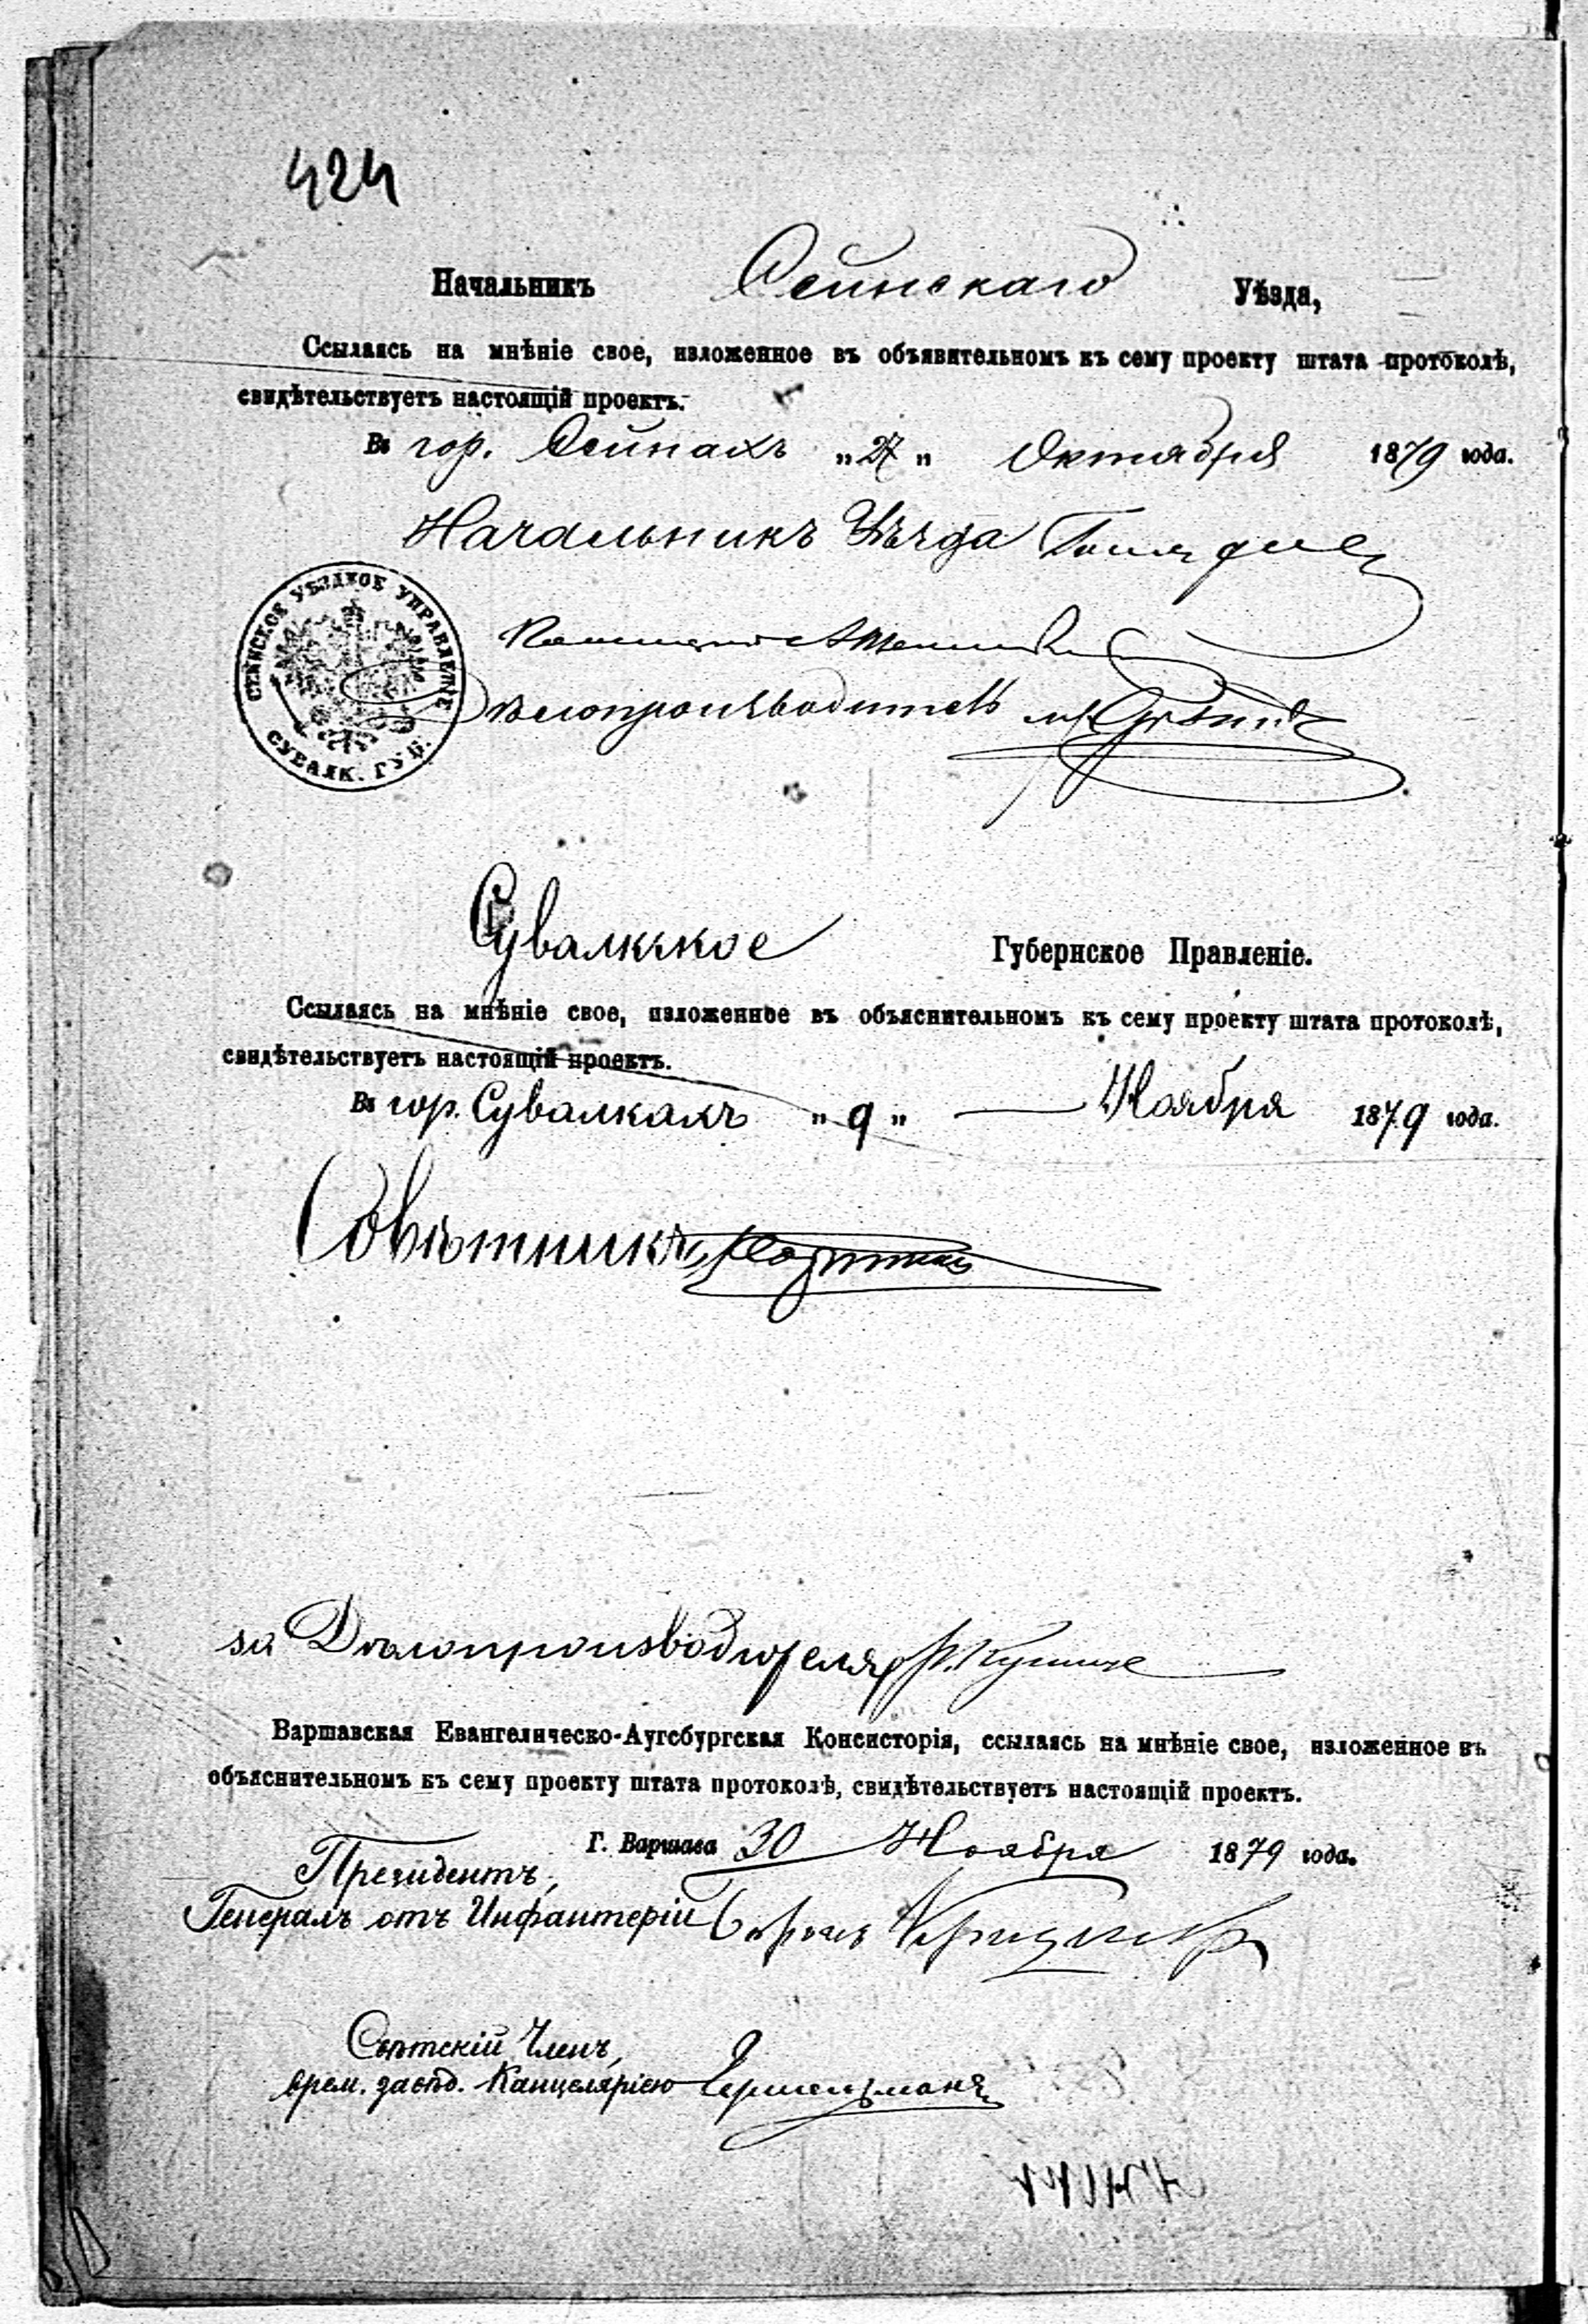 424
Начальникъ Сейнскаго Уѣзда,
Ссылаясь на мнѣніе свое, изложенное въ объявительномъ къ сему проекту штата протоколѣ,
свидѣтельствуетъ настоящій проектъ.
Въ гор. Сейнахъ „27„ Октября 1879 года.
Начальникъ Уѣзда
СЕЙНСКОЕ УѢЗДНОЕ УПРАВЛЕНІЕ
СУВАЛК. ГУБ.
Дѣлопроизводитель
Сувалкское Губернское Правленіе.
Ссылаясь на мнѣніе свое, изложенное въ объяснительномъ къ сему проекту штата протоколѣ,
свидѣтельствуетъ настоящій проектъ.
Въ гор. Сувалкахъ „9„ Ноября 1879 года.
Совѣтникъ
за Дѣлопроизводителя
Варшавская Евангелическо-Аугсбургская Консисторія, ссылаясь на мнѣніе свое, изложенное въ
объяснительномъ къ сему проекту штата протоколѣ, свидѣтельствуетъ настоящій проектъ.
Г. Варшава 30 Ноября 1879 года.
Президентъ,
Генералъ отъ Инфантеріи
Свѣтскій Членъ,
врем. завѣд. Канцеляріею